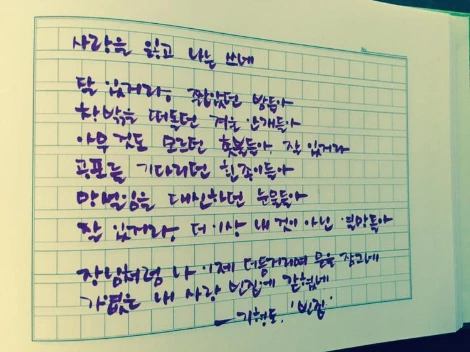 사랑을 잃고 나는 쓰네
잘 있거라, 짧았던 밤들아
창밖을 떠돌던 겨울 안개들아
아무것도 모르던 촛불들아, 잘 있거라
공포를 기다리던 흰 종이들아
망설임을 대신하던 눈물들아
잘 있거라, 더 이상 내 것이 아닌 열망들아
장님처럼 나 이제 더듬거리며 문을 잠그네
가엾은 내 사랑 빈집에 갇혔네
기형도, '빈집'